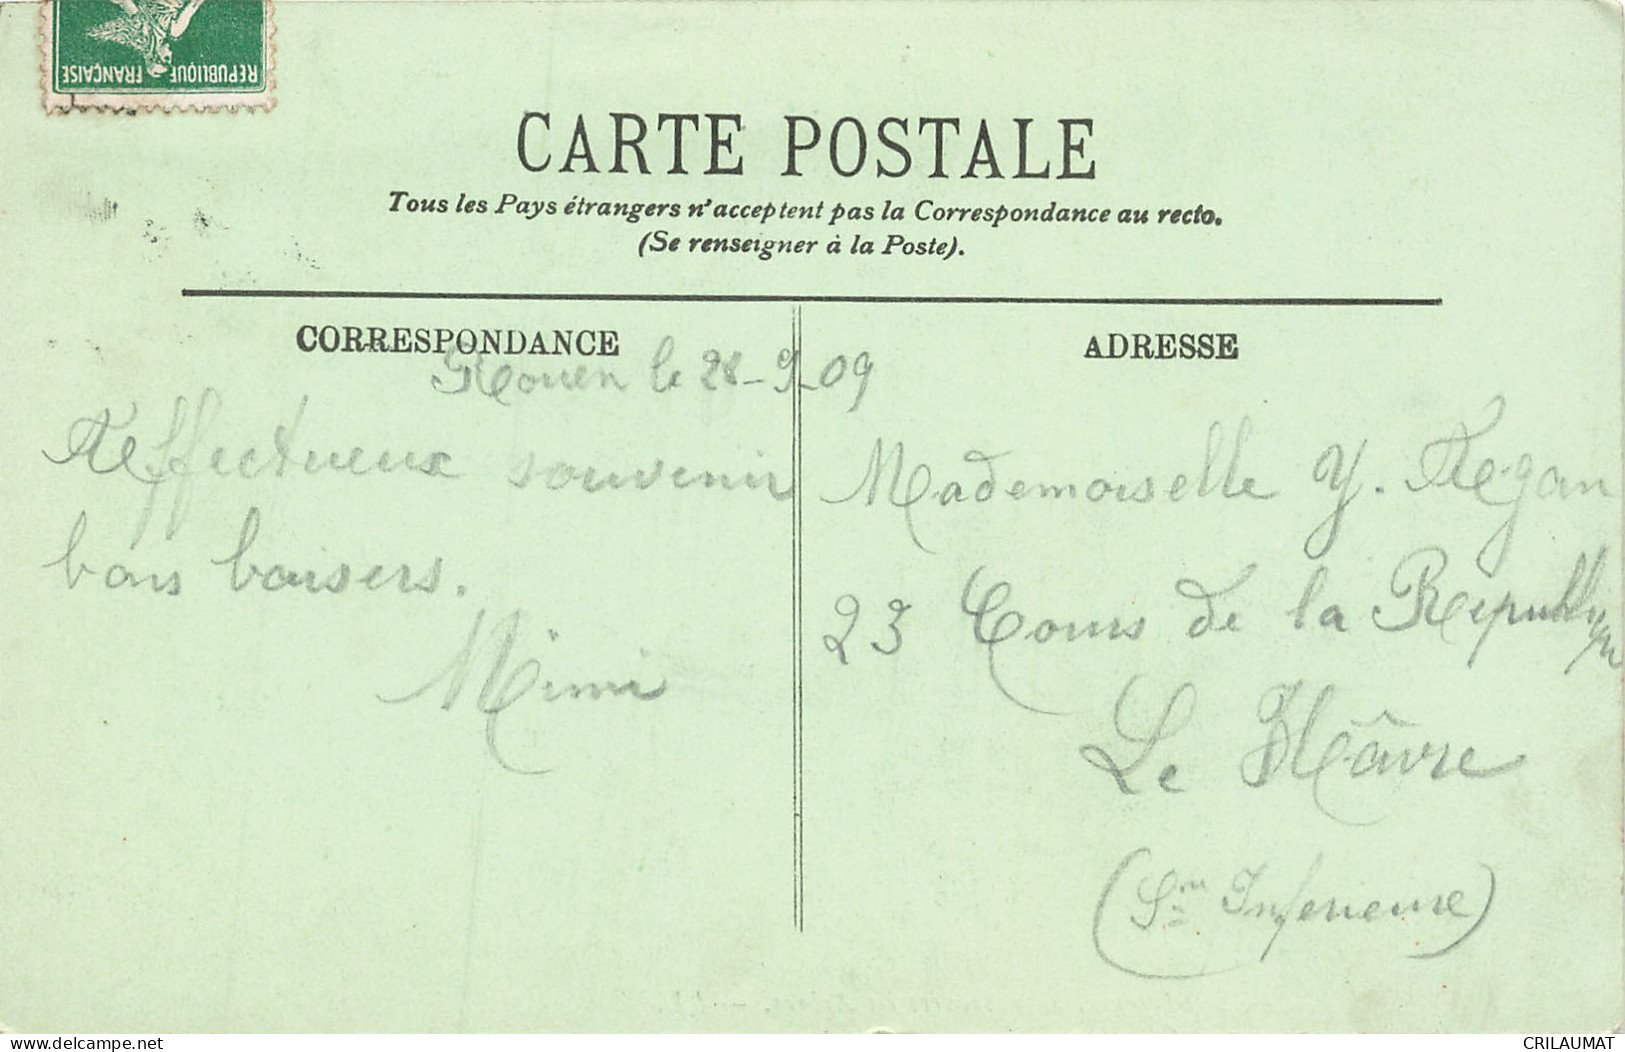 REPUBLIQUE FRANÇAISE
CARTE POSTALE
Tous les Pays étrangers n'acceptent pas la Correspondance au recto.
(Se renseigner à la Poste).
CORRESPONDANCE
Rouen le 28-9-09
Affectueux souvenir
bons baisers.
Mimi
ADRESSE
Mademoiselle Y. Aegan
23 Cours de la République
Le Hâvre
(Sne Inferieure)
www.delcampe.net
CRILAUMAT